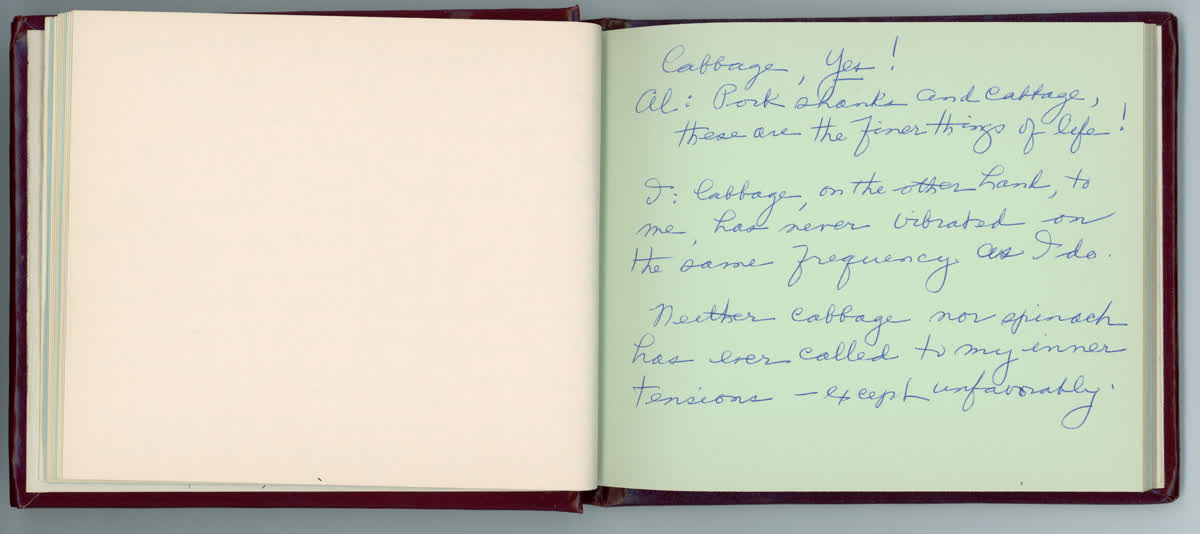 Cabbage, Yes!
Al: Pork shanks and cabbage,
these are the finer things of life!
I: Cabbage, on the other hand, to
me, has never vibrated on
the same frequency as I do.
Neither cabbage nor spinach
has ever called to my inner
tensions — except unfavorably.